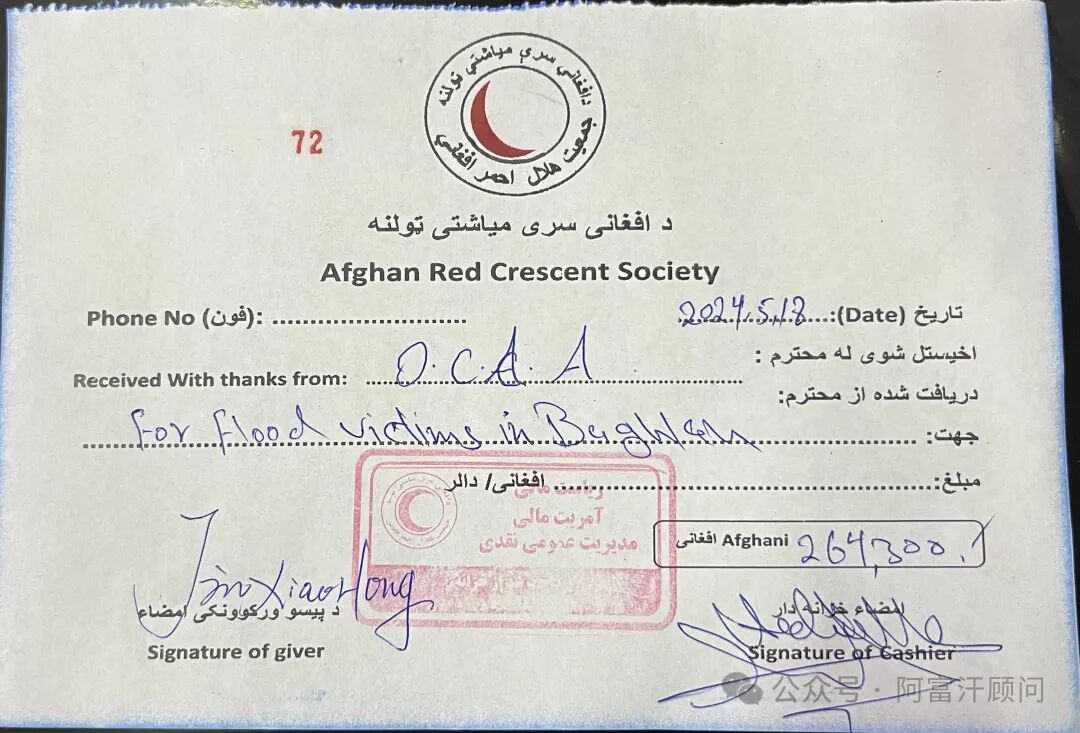 د افغاني سرې مياشتې ټولنه
جمعيت هلال احمر افغاني
72
د افغانی سری میاشتی ټولنه
Afghan Red Crescent Society
Phone No (فون): ........................ 2024.5.18 :(Date) تاریخ
اخیستل شوی له محترم :
Received With thanks from: O.C.A.A
دریافت شده از محترم:
جهت: For flood victims in Baghlan
مبلغ: افغانی/ دالر
ریاست مالی
آمریت مالی
مدیریت عمومی نقدی
افغانی Afghani 264,300
JinXiaoHong
د پیسو ورکوونکی امضاء
امضاء خزانه دار
Signature of giver
Signature of Cashier
公众号 · 阿富汗顾问